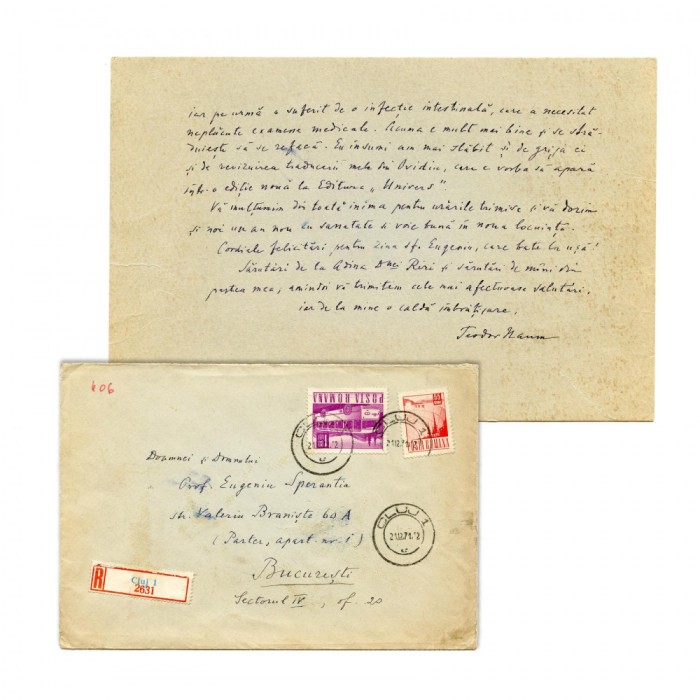 iar pe urmă a suferit de o infecție intestinală, care a necesitat
neplăcute examene medicale. Acuma e mult mai bine și se stră-
duiește să se refacă. Eu însumi am mai slăbit și de grija ei
și de revizuirea traducerii mele din Ovidiu, care e vorba să apară
într-o ediție nouă la Editura „Univers”
Vă mulțumim din toată inima pentru urările trimise și vă dorim
și noi un an nou cu sanatate și voie bună în noua locuință.
Cordiale felicitări pentru ziua sf. Eugeniu, care bate la ușă!
Sărutări de la Adina Dnei Riri și sărutări de mîni din
partea mea, amindoi vă trimitem cele mai afectuoase salutări,
iar de la mine o caldă îmbrățișare,
Teodor Naum
406
POSTA ROMANA
POSTA ROMANA
CLUJ 1
CLUJ 1
Doamnei și Domnului
Prof. Eugeniu Sperantia
str. Valeriu Braniște 60 A
(Parter, apart. nr. 1)
București
Sectorul IV, of. 20
CLUJ 1
21.12.71.12
R
Cluj 1
2631